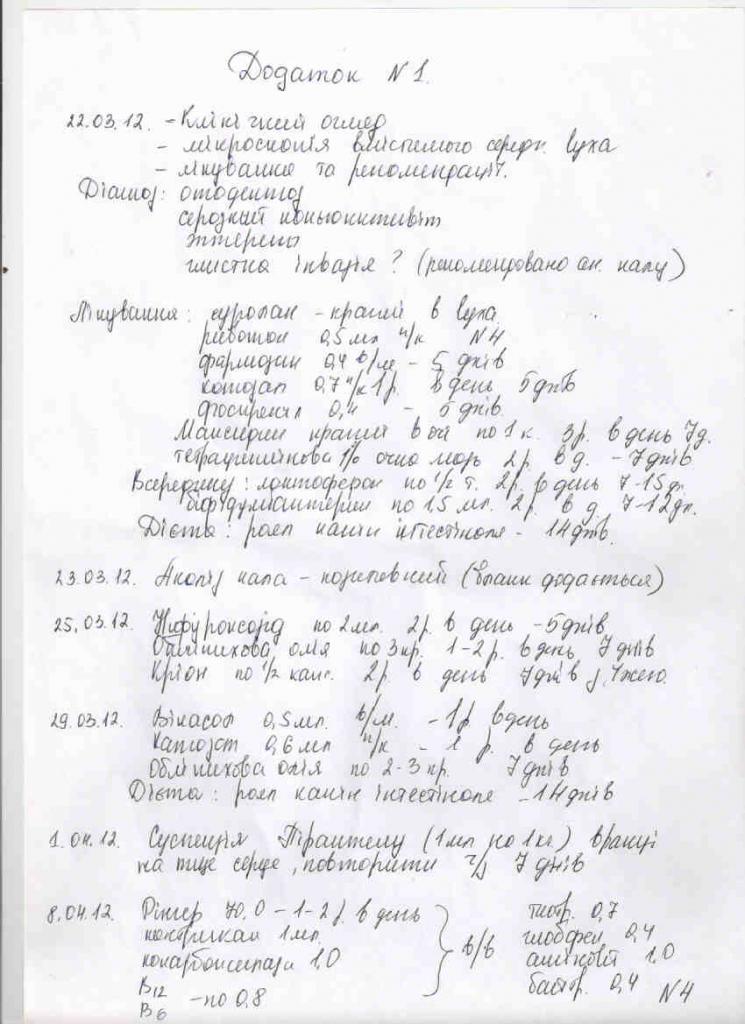 Додаток N 1.
22.03.12. - Клінічний огляд
- мікроскопія вмістимого середн. вуха
- лікування та рекомендації.
Діагноз: отодектоз
серозный коньюнктивіт
энтерены
глистна інвазія? (рекомендовано ан. калу)
Лікування: суролан - краплі в вуха
риботан 0,5 мл п/к N4
фармазин 0,4 в/м - 5 днів
катозал 0,7 п/к 1 р. в день 5 днів
фоспреніл 0,4 - 5 днів.
Максидин краплі в очі по 1 к. 3 р. в день 7 д.
тетрациклінова 1% очна мазь 2 р. в д. - 7 днів
Всередину: лактоферон по 1/2 т. 2 р. в день 7-15 дн.
біфідумбактерин по 1,5 мл. 2 р. в д. 7-12 дн.
Дієта: роял канин інтестінале - 14 днів.
23.03.12. Аналіз кала - (бланк додається)
25.03.12. Ніфуроксазид по 2 мл. 2 р. в день - 5 днів
Обліпихова олія по 3 кр. 1-2 р. в день 7 днів
Кріон по 1/2 капс. 2 р. в день 7 днів з їжею.
29.03.12. Вікасол 0,5 мл. в/м. - 1 р. в день
Катозал 0,6 мл п/к - 1 р. в день
Обліпихова олія по 2-3 кр. 7 днів
Дієта: роял канин інтестінале - 14 днів
1.04.12. Суспензія Пірантелу (1 мл на 1 кг.) вранці
на тще серце, повторити ч/з 7 днів
8.04.12. Рінгер 70,0 - 1-2 р. в день
контрикал 1 мл.
кокарбоксилази 1,0
B12
B6 - по 0,8
в/в
0,7
0,4
1,0
0,4 N4